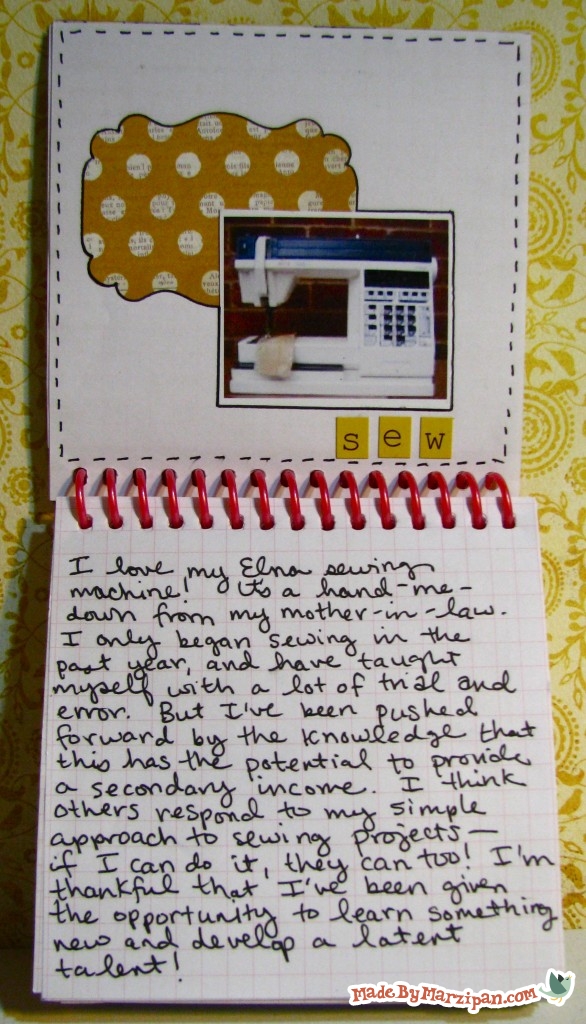 sew
I love my Elna sewing
machine! It's a hand-me-
down from my mother-in-law.
I only began sewing in the
past year, and have taught
myself with a lot of trial and
error. But I've been pushed
forward by the knowledge that
this has the potential to provide
a secondary income. I think
others respond to my simple
approach to sewing projects—
if I can do it, they can too! I'm
thankful that I've been given
the opportunity to learn something
new and develop a latent
talent!
MadeByMarzipan.com